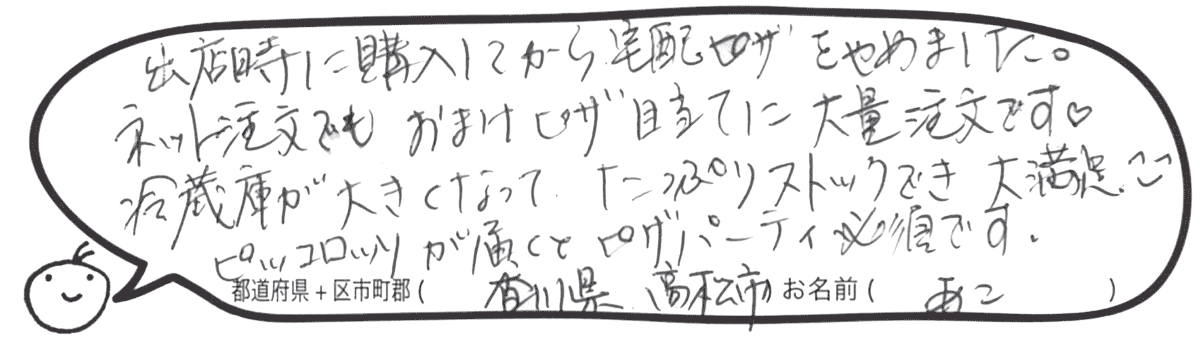 出店時に購入してから宅配ピザをやめました。
ネット注文でもおまけピザ目当てに大量注文です♡
冷蔵庫が大きくなって、たっぷりストックでき大満足
ピッコロッソが届くとピザパーティ必須です。
都道府県+区市町郡( 香川県 高松市 お名前( あこ )